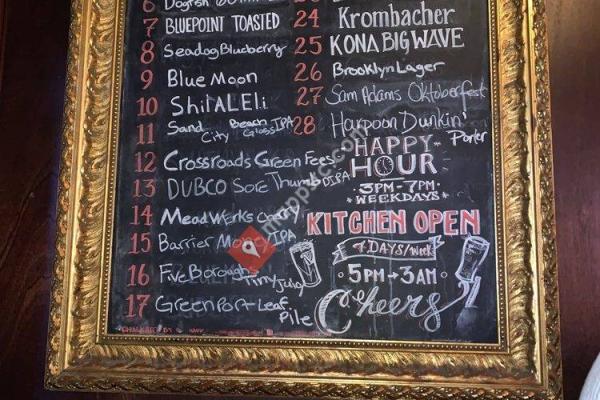 6 Dogfish 60 min
7 BLUEPOINT TOASTED
8 Seadog Blueberry
9 Blue Moon
10 ShilALELi
11 Sand City Beach IPA
12 Crossroads Green Fees
13 DUBCO Sore Thumb DIPA
14 MeadWerks Cherry
15 Barrier Money IPA
16 Five Boroughs Tiny Juicy
17 GreenPort Leaf Pile
24 Krombacher
25 KONA BIG WAVE
26 Brooklyn Lager
27 Sam Adams Oktoberfest
28 Harpoon Dunkin' Porter
HAPPY
HOUR
3PM-7PM
WEEKDAYS
KITCHEN OPEN
7 DAYS/week
5PM→3AM
Cheers